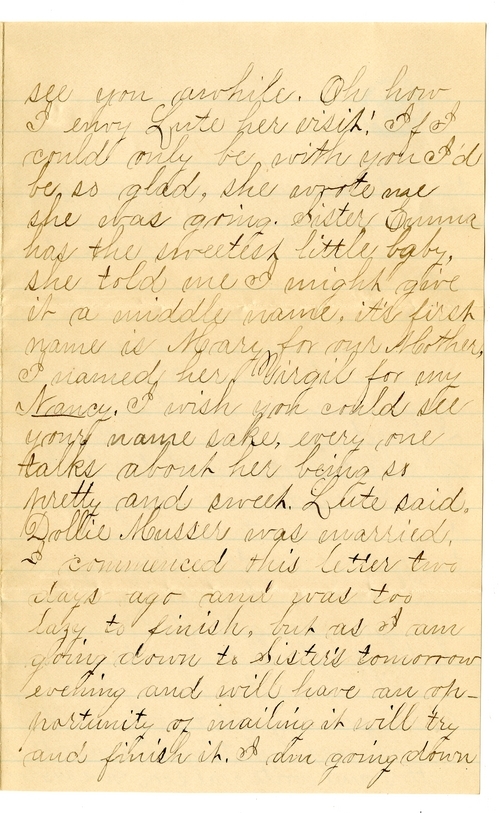 see you awhile. Oh how
I envy Lute her visit! If I
could only be with you I'd
be so glad, she wrote me
she was going. Sister Emma
has the sweetest little baby,
she told me I might give
it a middle name. it's first
name is Mary for our Mother,
I named her Virgil for my
Nancy. I wish you could see
your name sake, every one
talks about her being so
pretty and sweet. Lute said.
Dollie Musser was married.
I commenced this letter two
days ago and was too
lazy to finish, but as I am
going down to Sister's tomorrow
evening and will have an op-
portunity of mailing it will try
and finish it. I am going down